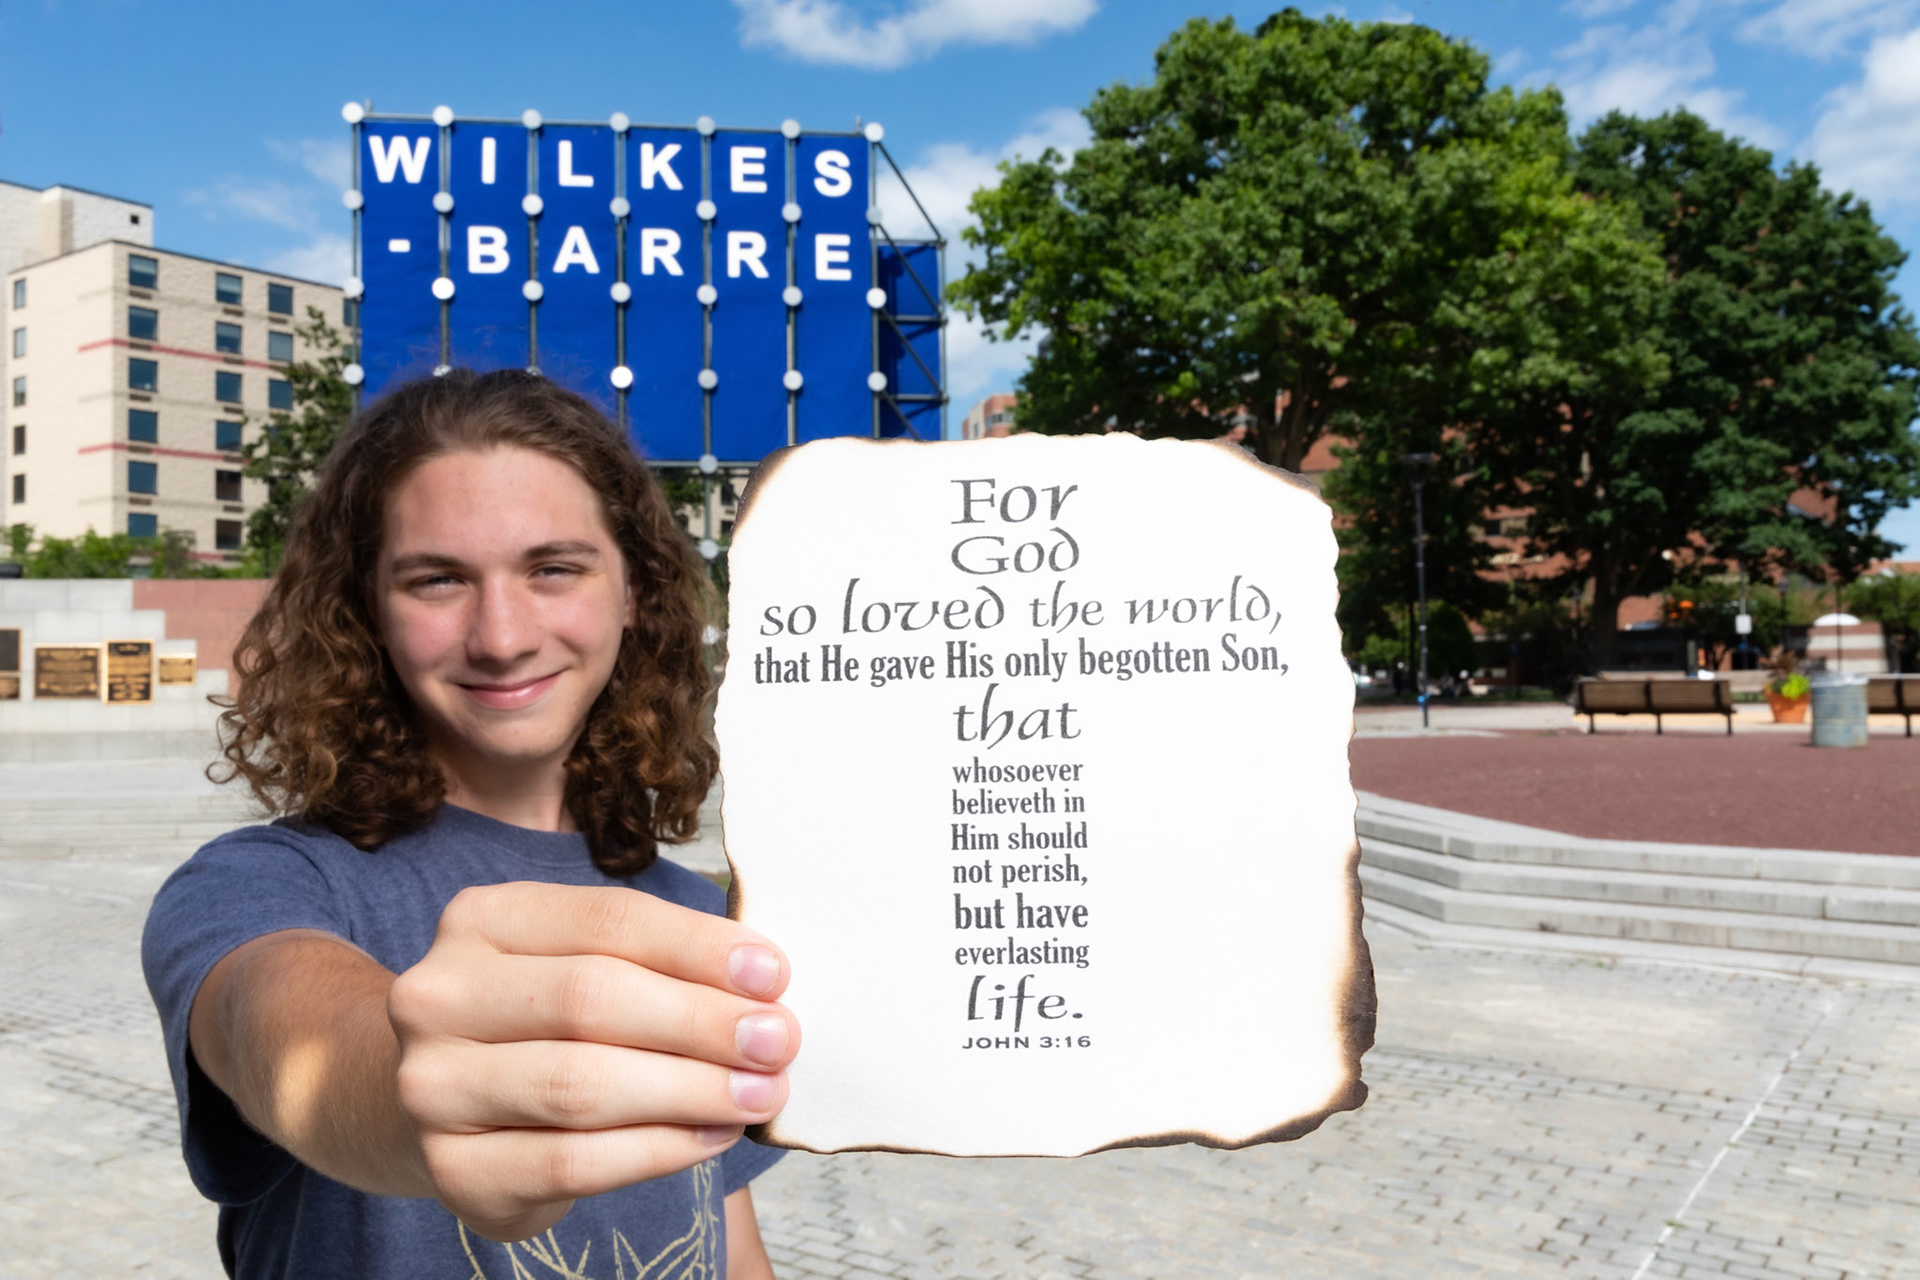 WILKES
-BARRE
For
God
so loved the world,
that He gave His only begotten Son,
that
whosoever
believeth in
Him should
not perish,
but have
everlasting
life.
JOHN 3:16